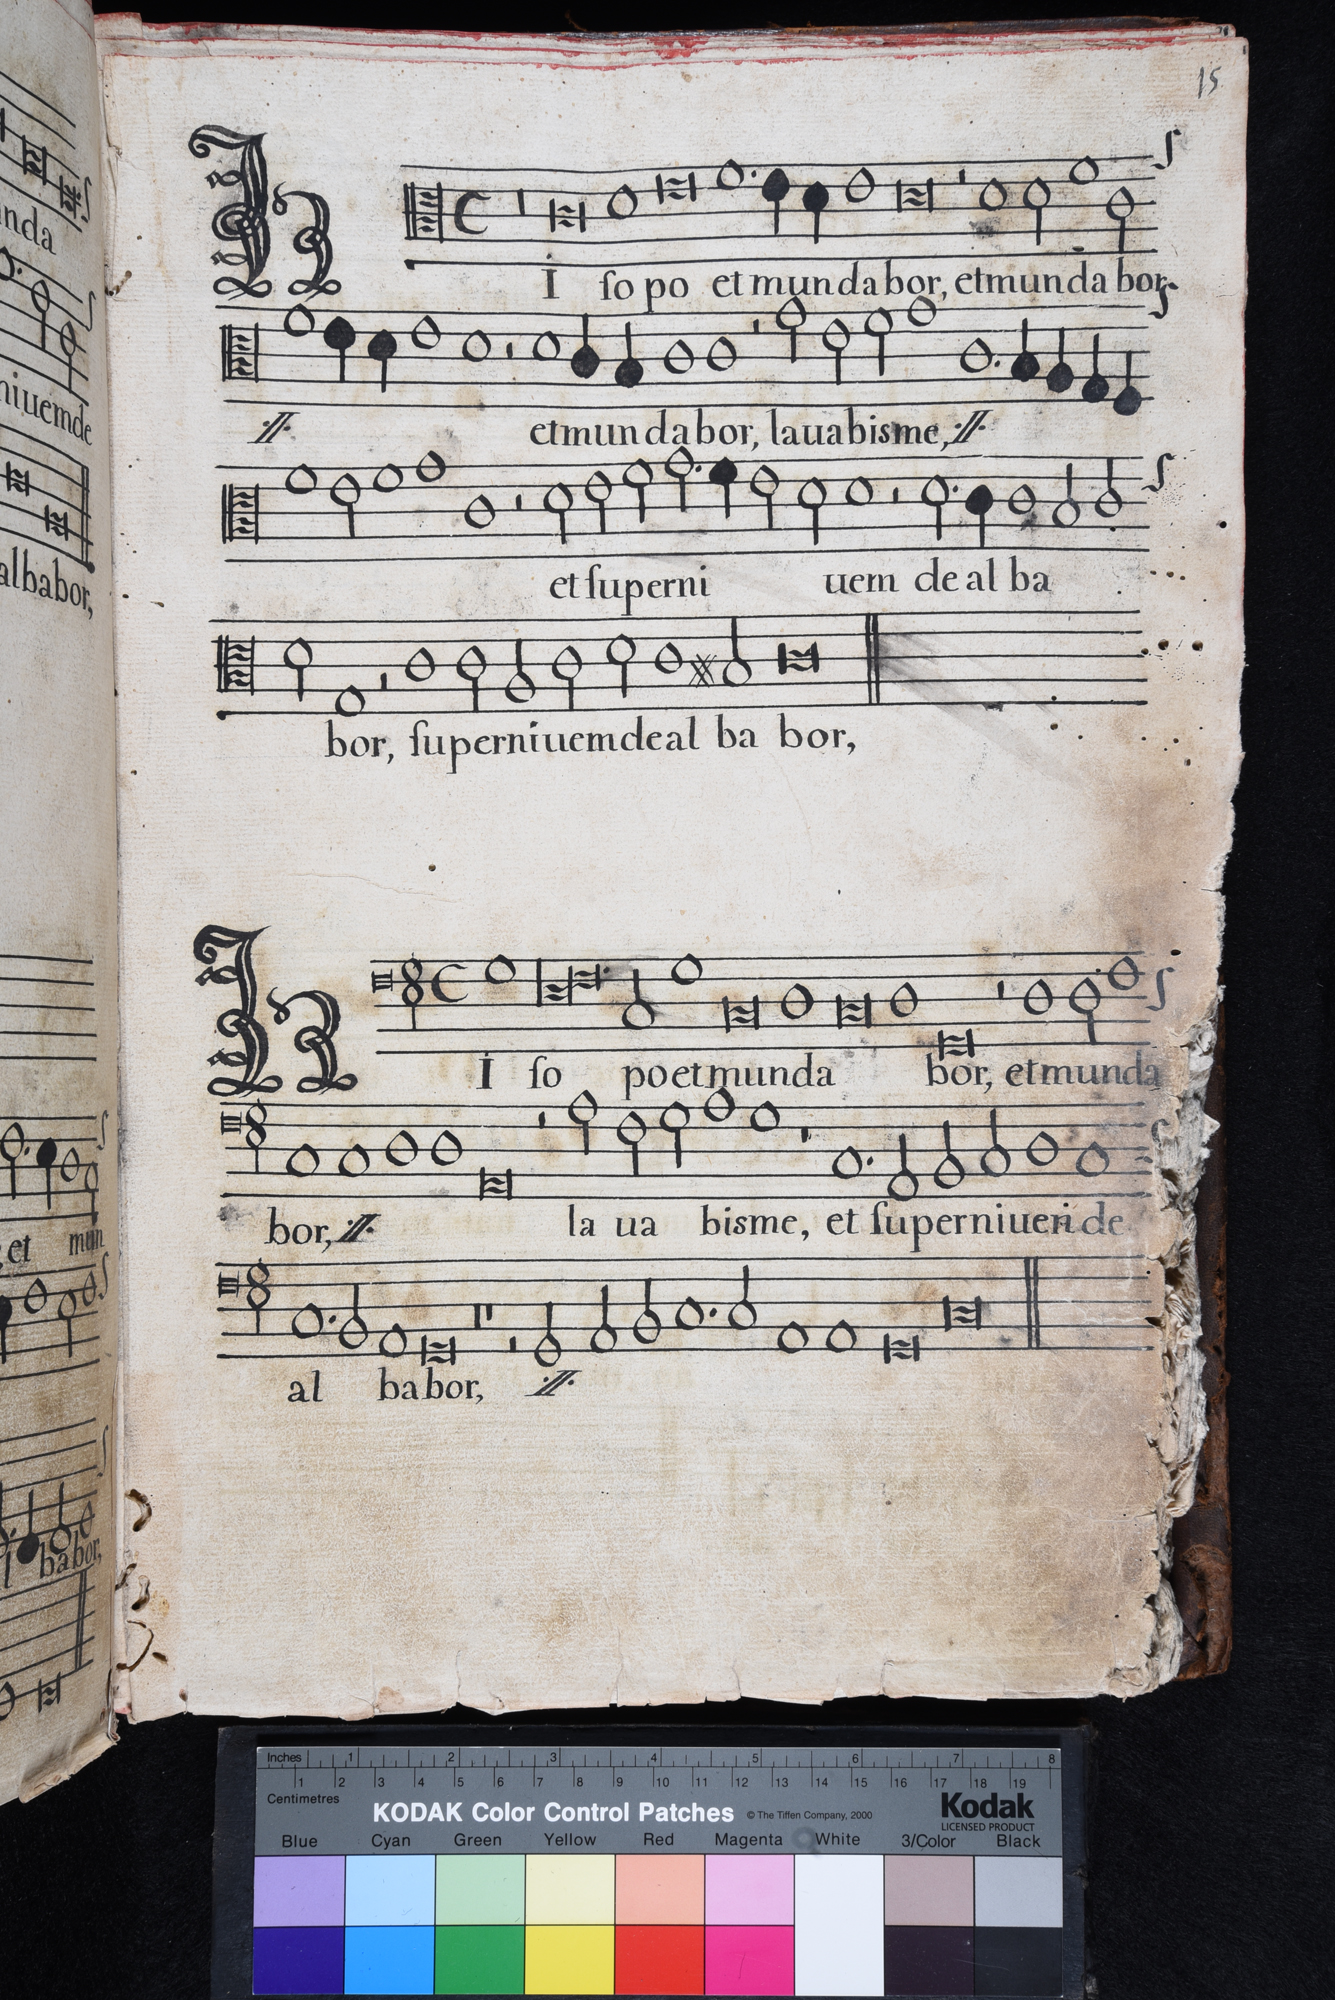 15
I ſo po et mundabor, etmunda bor,
etmundabor, lauabisme,
et ſuperni uem de al ba
bor, ſuperniuemdeal ba bor,
I ſo poetmunda bor, etmunda
bor, la ua bisme, et ſuperniuem de
al babor,
unda
niuemde
albabor,
et mun
babor,
Inches 1 2 3 4 5 6 7 8
Centimetres 1 2 3 4 5 6 7 8 9 10 11 12 13 14 15 16 17 18 19
KODAK Color Control Patches © The Tiffen Company, 2000 Kodak
LICENSED PRODUCT
Blue Cyan Green Yellow Red Magenta White 3/Color Black